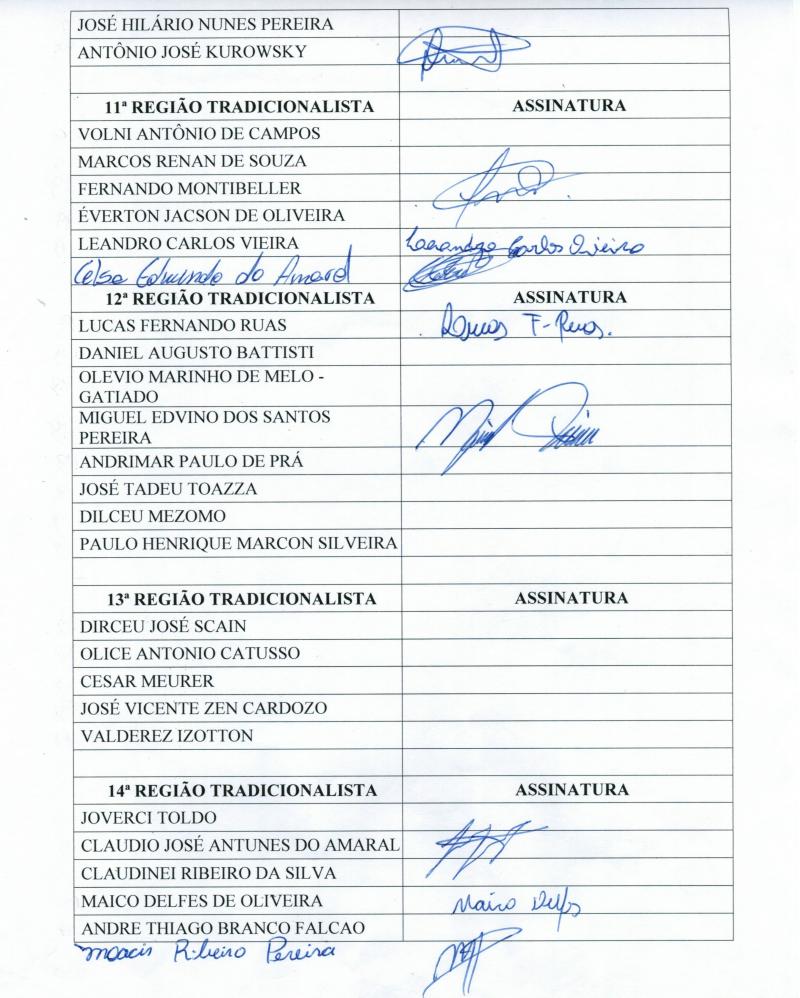 JOSÉ HILÁRIO NUNES PEREIRA
ANTÔNIO JOSÉ KUROWSKY
11ª REGIÃO TRADICIONALISTA ASSINATURA
VOLNI ANTÔNIO DE CAMPOS
MARCOS RENAN DE SOUZA
FERNANDO MONTIBELLER
ÉVERTON JACSON DE OLIVEIRA
LEANDRO CARLOS VIEIRA Leeandro Carlos Vieira
Celso Edmundo do Amaral
12ª REGIÃO TRADICIONALISTA ASSINATURA
LUCAS FERNANDO RUAS
DANIEL AUGUSTO BATTISTI
OLEVIO MARINHO DE MELO -
GATIADO
MIGUEL EDVINO DOS SANTOS
PEREIRA
ANDRIMAR PAULO DE PRÁ
JOSÉ TADEU TOAZZA
DILCEU MEZOMO
PAULO HENRIQUE MARCON SILVEIRA
13ª REGIÃO TRADICIONALISTA ASSINATURA
DIRCEU JOSÉ SCAIN
OLICE ANTONIO CATUSSO
CESAR MEURER
JOSÉ VICENTE ZEN CARDOZO
VALDEREZ IZOTTON
14ª REGIÃO TRADICIONALISTA ASSINATURA
JOVERCI TOLDO
CLAUDIO JOSÉ ANTUNES DO AMARAL
CLAUDINEI RIBEIRO DA SILVA
MAICO DELFES DE OLIVEIRA Maico Delfes
ANDRE THIAGO BRANCO FALCAO
Moacir Ribeiro Pereira